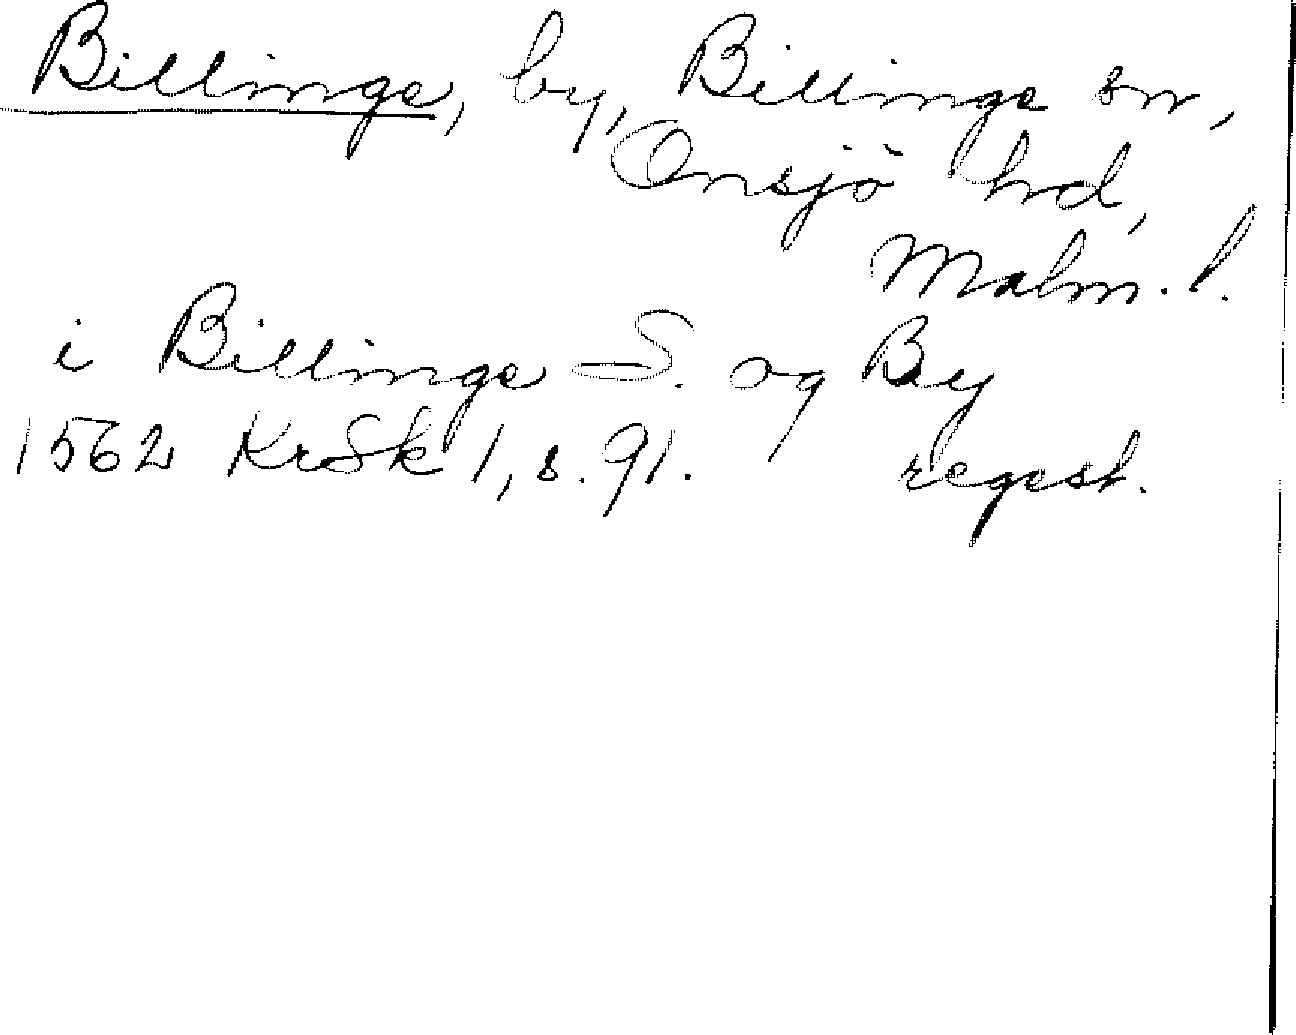 Billinge, by, Billinge sn,
Onsjö hd,
Malm. l.
i Billinge S. og By
1562 KrSk 1, s. 91. regest.